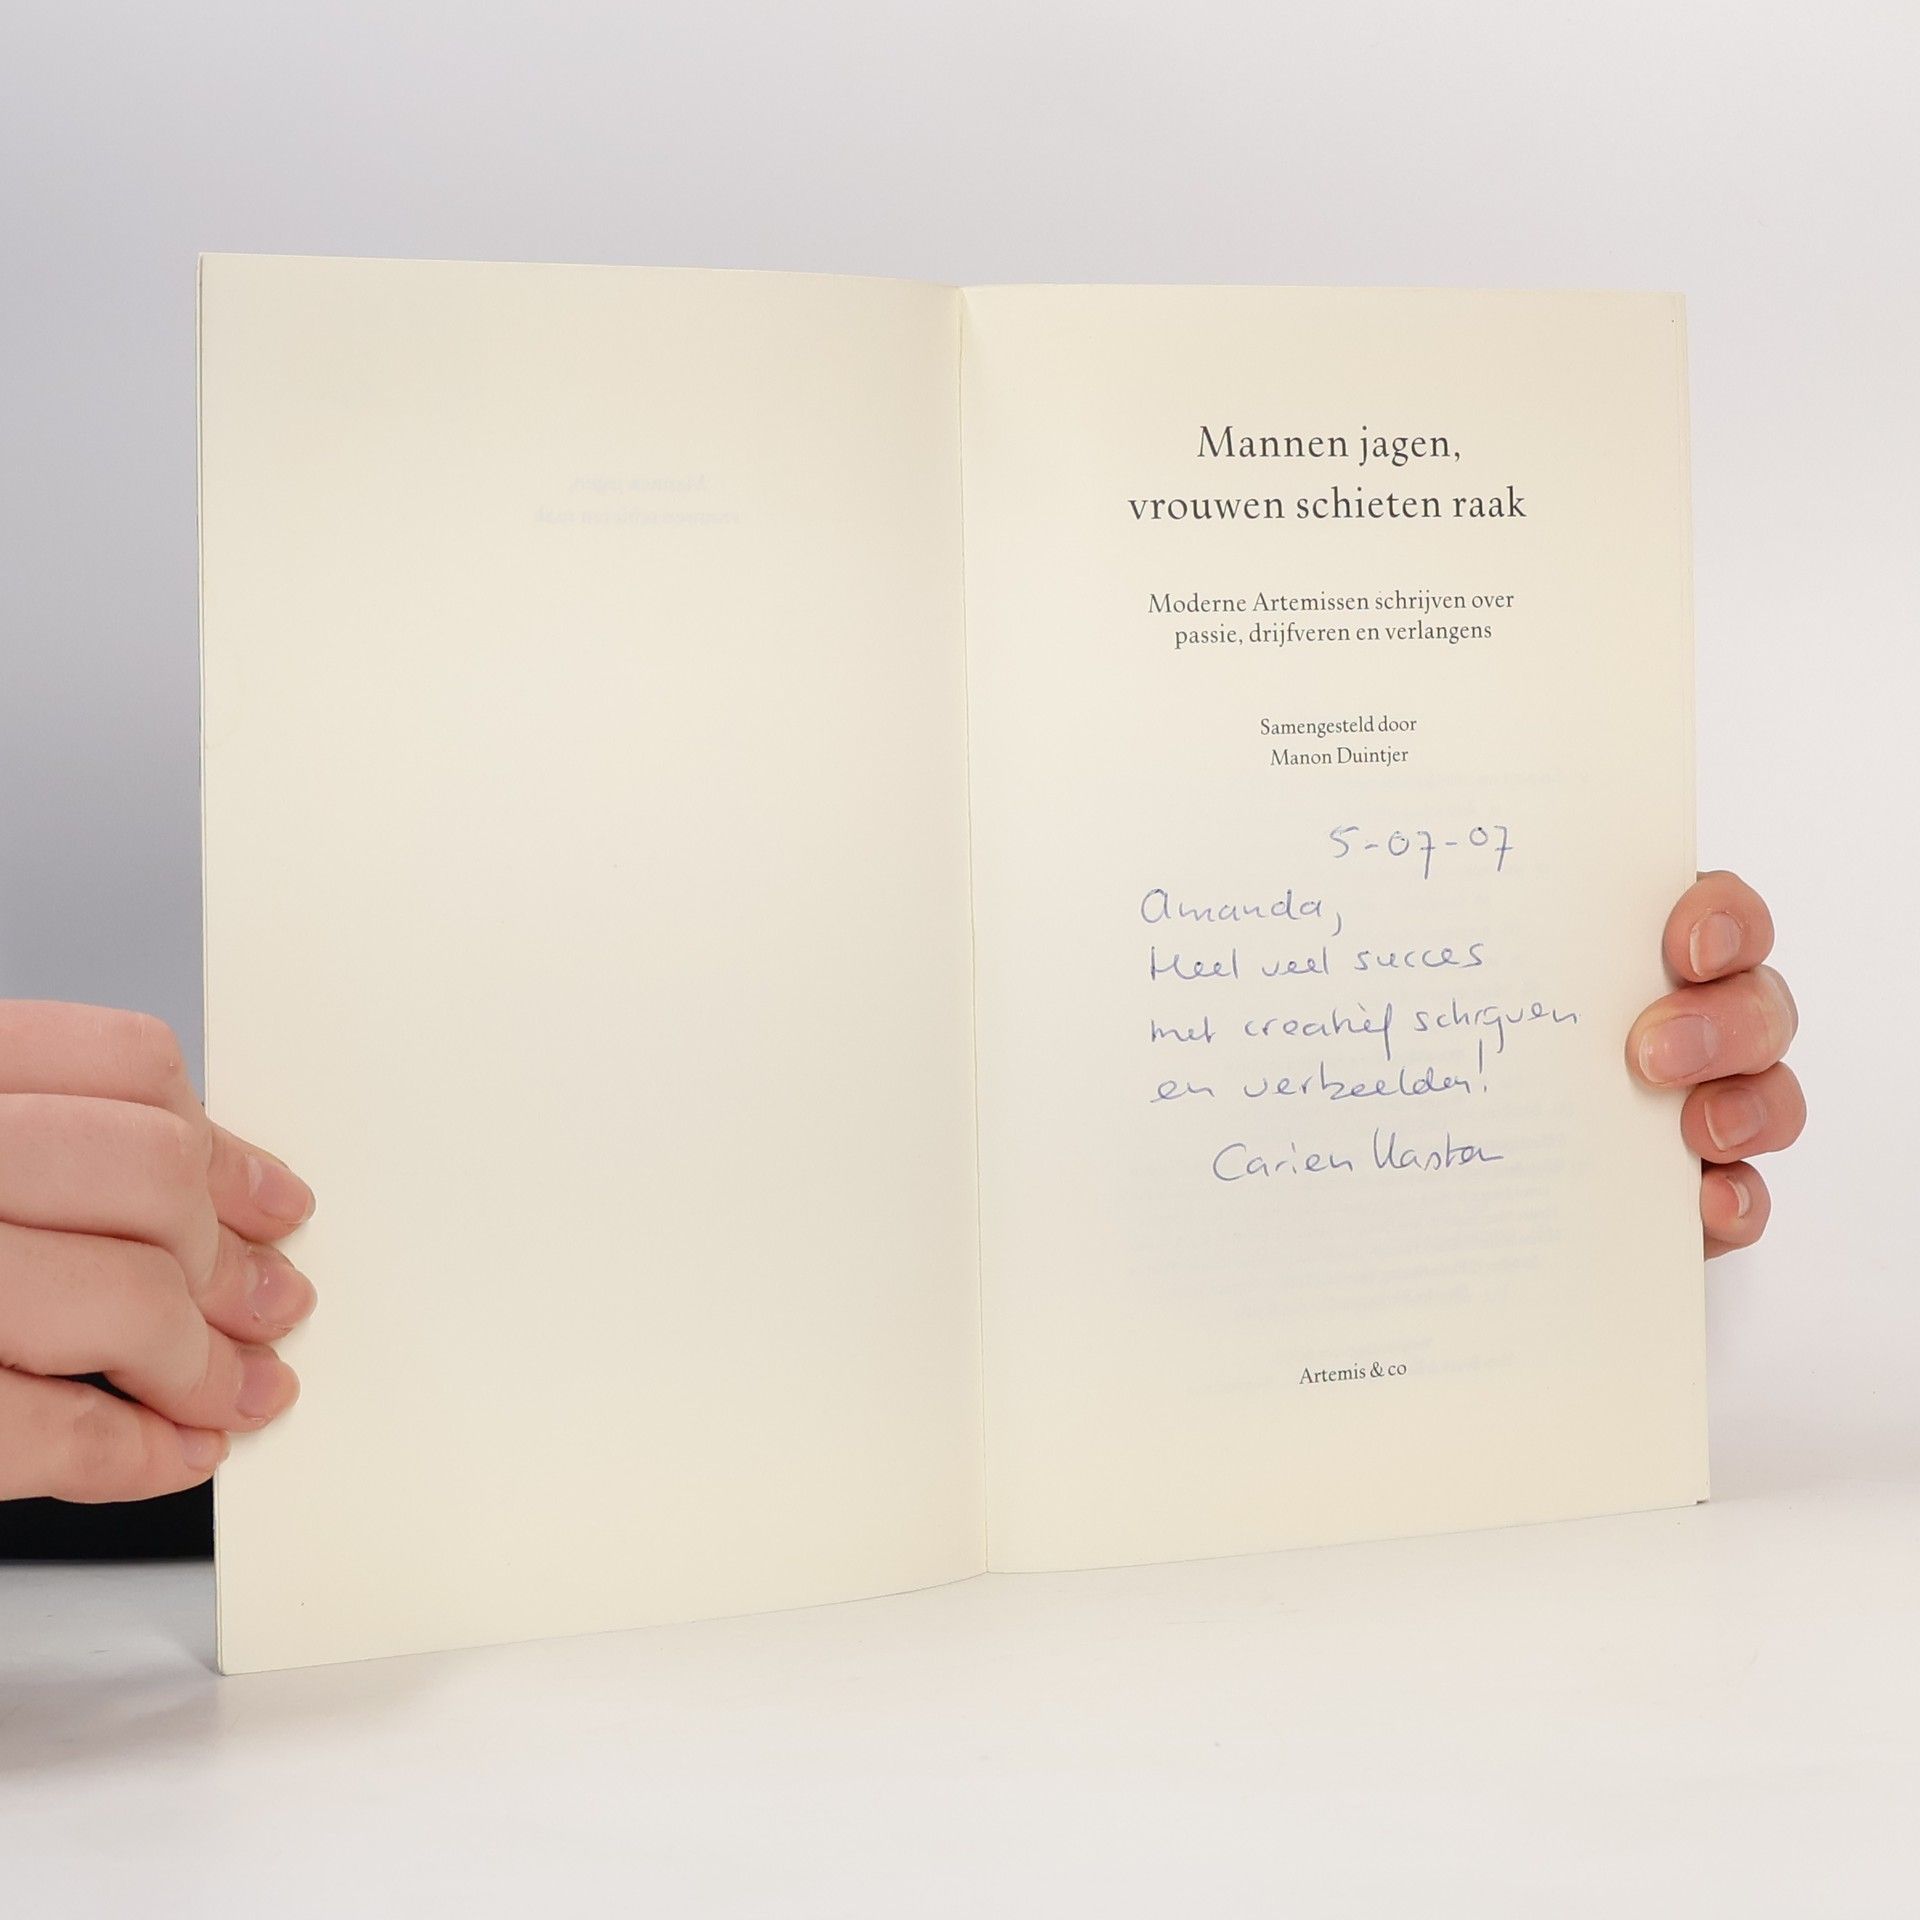 Mannen jagen,
vrouwen schieten raak
Moderne Artemissen schrijven over
passie, drijfveren en verlangens
Samengesteld door
Manon Duintjer
5-07-07
Amanda,
Heel veel succes
met creatief schrijven
en verbeelden!
Carien Karsten
Artemis & co